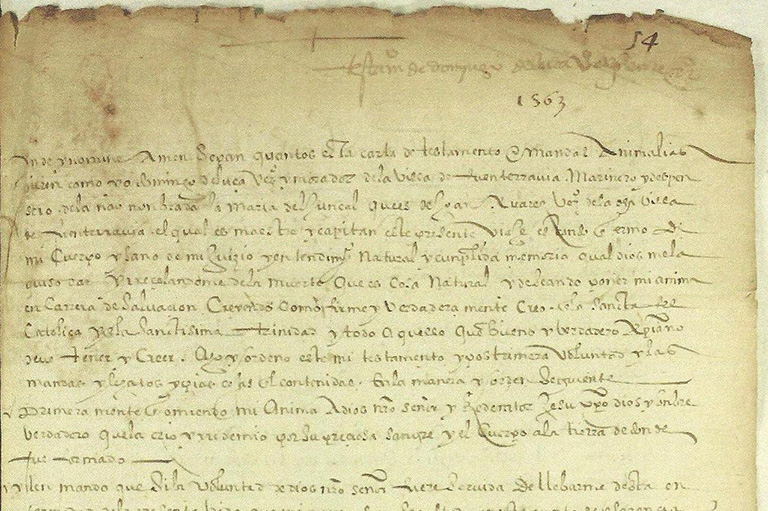 54
testamº de domingo de luça vezº
1563
yn dey nomine Amen Sepan quantos esta carta de testamento e mandas Animalias
vieren como yo domingo de luça vezº y morador de la villa de fuenterravia Marinero y despen
sero de la nao nonbrada la Maria del Juncal que es de Joan Xuarez vezº de la dha Villa
de fuenterravia el qual es maestre y capitan este presente viaje estando enfermo de
mi Cuerpo y sano de mi Juizio y entendimyº Natural y cunplida memoria qual dios me la
quiso dar y recelandome de la muerte que es Cosa Natural y deseando poner mi anima
en Carrera de salvacion Creyendo Como firme y Verdadera mente Creo en la sancta fee
Catolica y en la sanctisima trinidad y todo aquello que bueno y berdadero xpiano
deve tener y Creer Ago y ordeno este mi testamento y postrimera Voluntad y las
mandas y legatos y pias en el contenidas En la manera y orden seguiente
Primera mente encomiendo mi Anima A dios nro señor y Redentor Jesu xpo dios y onbre
verdadero que la crio y redemio por su preciosa sangre y el Cuerpo a la tierra de donde
fue formado
yten mando que si la Voluntad de dios nro señor fuere servida de llebarme desta en